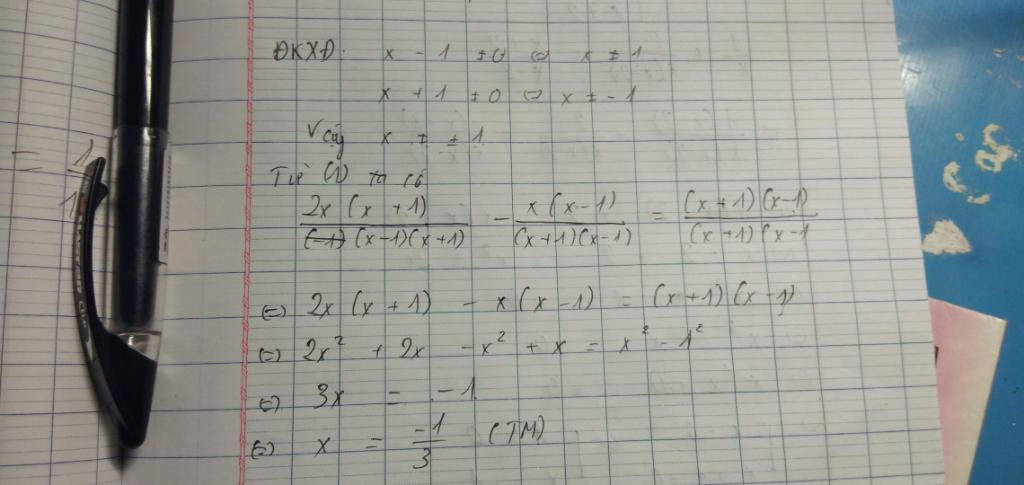 ĐKXĐ: x - 1 ≠ 0 ⇔ x ≠ 1
x + 1 ≠ 0 ⇔ x ≠ -1
Vậy x ≠ ± 1
Từ (1) ta có
2x (x + 1) / (x-1)(x+1) - x (x-1) / (x+1)(x-1) = (x+1)(x-1) / (x+1)(x-1
⇔ 2x (x + 1) - x (x - 1) = (x+1) (x-1)
⇔ 2x² + 2x - x² + x = x² - 1²
⇔ 3x = -1
⇔ x = -1/3 (TM)